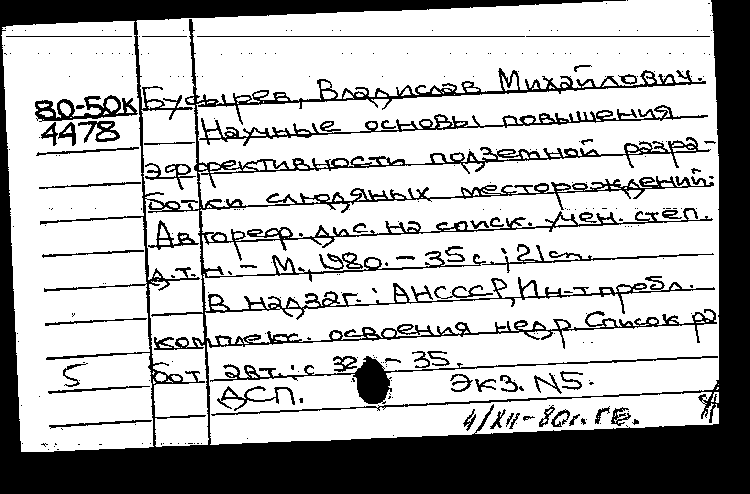 80-50к Бусырев, Владислав Михайлович.
4478 Научные основы повышения
эффективности подземной разра-
ботки слюдяных месторождений:
Автореф. дис. на соиск. учен. степ.
д.т.н. - М., 1980. - 35 с.; 21 см.
В надзаг.: АН СССР, Ин-т пробл.
комплекс. освоения недр. Список ра
5 бот авт.: с 32 - 35.
ДСП. Экз. N5.
4/XII-80г. ГВ.